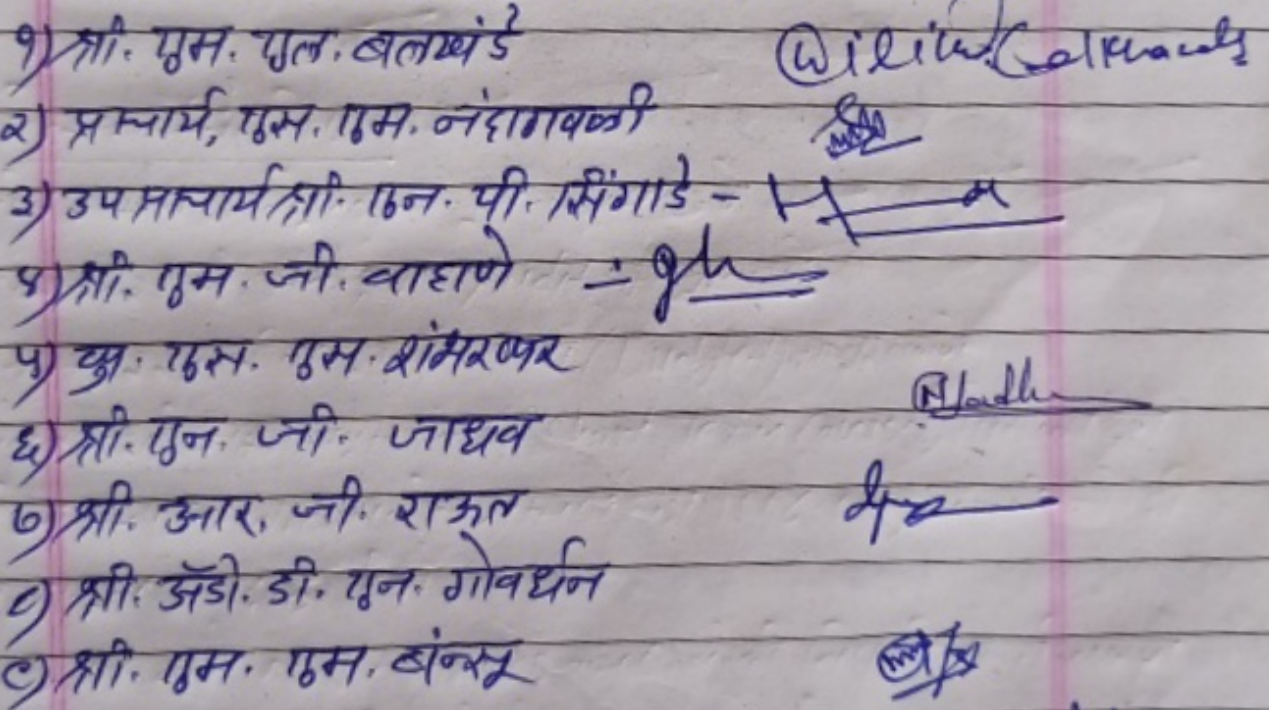 १) श्री. एम. एल. बलखंडे
२) प्राचार्य, एस. एम. नंदागवळी
३) उपप्राचार्य श्री. एन. पी. सिंगाडे -
४) श्री. एम. जी. वाहाणे -
५) कु. एस. एम. शंभरकर
६) श्री. एन. जी. जाधव
७) श्री. आर. जी. राऊत
८) श्री. अ‍ॅडो. डी. एन. गोवर्धन
९) श्री. एम. एम. बन्सू